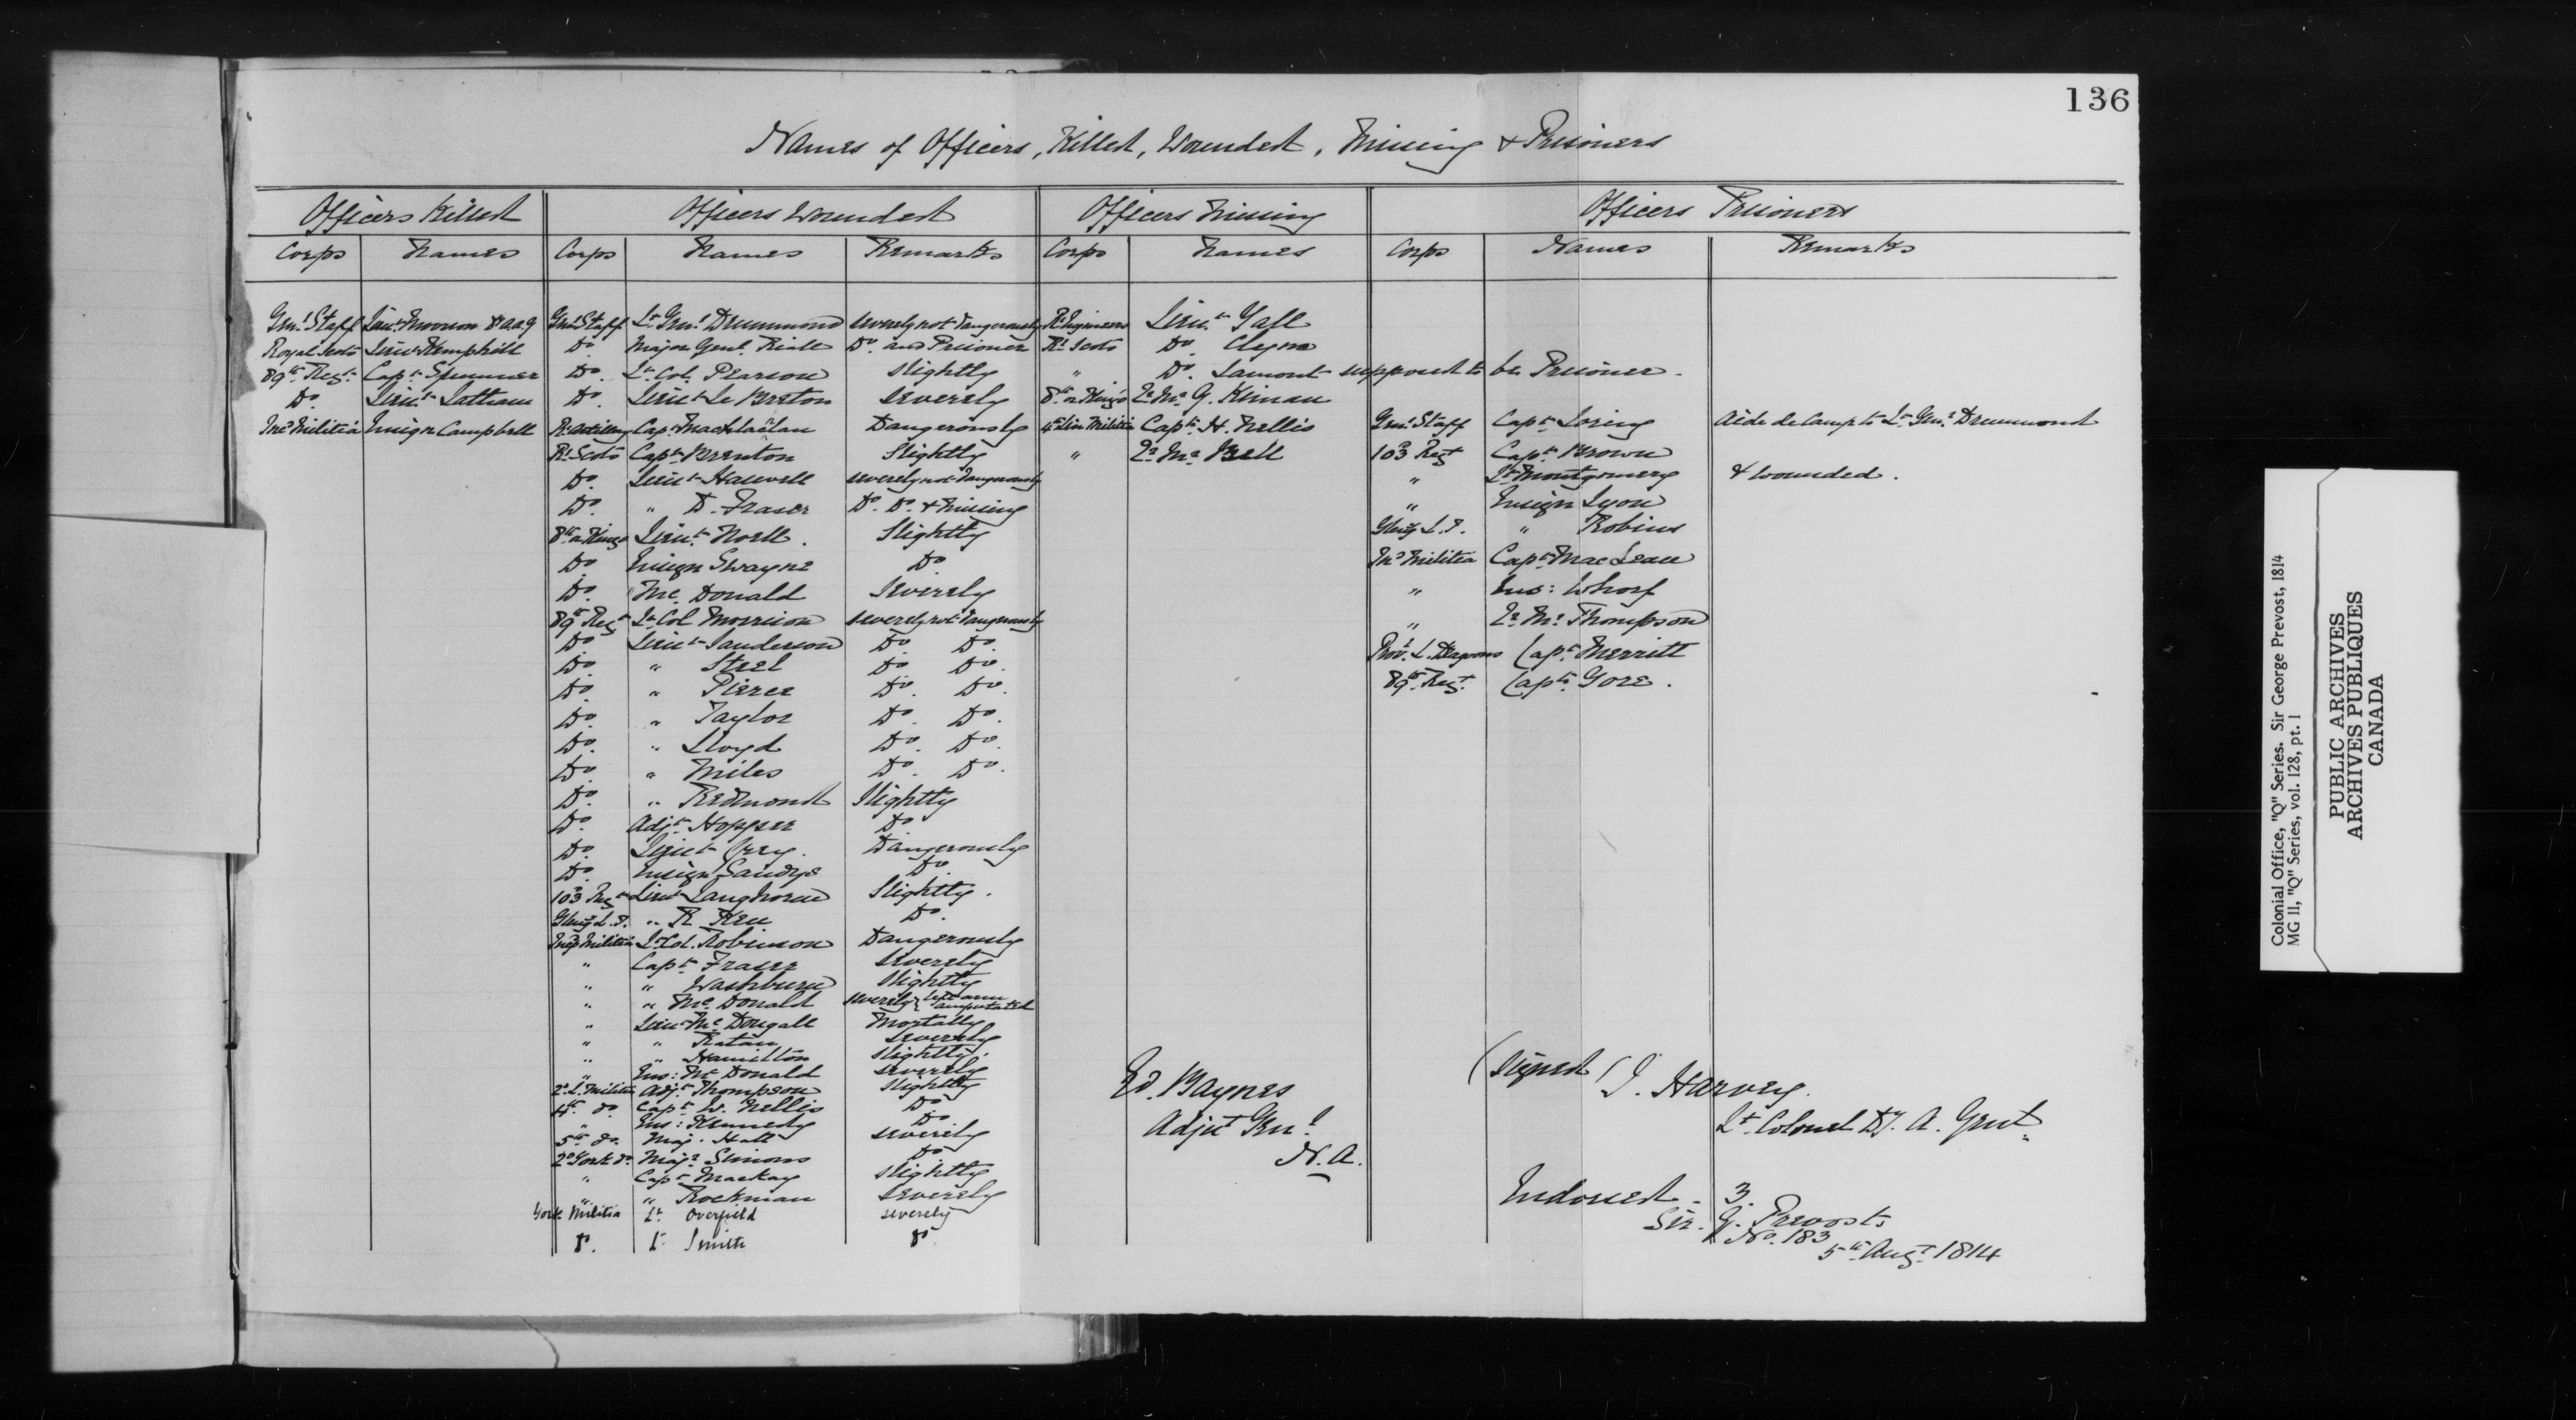 136
Names of Officers, Killed, Wounded, Missing & Prisoners
Officers Killed Officers Wounded Officers Missing Officers Prisoners
Corps Names Corps Names Remarks Corps Names Corps Names Remarks
Genl Staff Lieut Moorson D.A.A.G Genl Staff Lt Genl Drummond severely not dangerously Rl Engineers Lieut Yall
Royal Scots Lieut Hemphill Do Major Genl Riall Do and Prisoner Rl Scots Do Clyne
89th Regt Capt Spunner Do. Lt Col. Pearson slightly " Do. Lamont supposed to be Prisoner.
Do. Lieut Latham Do. Lieut Le Breton severely 8th or King's Qr Mr G. Kirnan
Incd Militia Ensign Campbell Rl Artillery Capt Machlachlan Dangerously 4th Lin Militia Capt H. Nellis Genl Staff Capt Loring Aide de Camp to Lt Genl Drummond
Rl Scots Capt Brereton Slightly " Qr Mr Bell 103d Regt Capt Brown
Do. Lieut Haswell severely not dangerously " Lt Montgomery & wounded.
Do. " D. Fraser Do. Do. & missing " Ensign Lyon
8th or Kings Lieut Noell. Slightly Glengy L.I. " Robins
Do. Ensign Swayne Do. Incd Militia Capt MacLean
Do. " McDonald Severely " Ens: Whorf
89th Regt Lt Col Morrison severely not dangerously " Qr Mr Thompson
Do. Lieut Sanderson Do. Do. Provl L. Dragoons Capt Merritt
Do. " Steel Do Do. 89th Regt. Capt Gore.
Do. " Pierce Do. Do.
Do. " Taylor Do. Do.
Do. " Lloyd Do. Do.
Do. " Miles Do. Do.
Do. " Redmond Slightly
Do. Adjt Hopper Do
Do. Lieut Grey. Dangerously
Do. Ensign Sandys Do.
103d Regt Lieut Langhorne Slightly.
Glengy L.I. " R Kerr Do.
Incd Militia Lt Col. Robinson Dangerously
" Capt Fraser severely
" " Washburn slightly
" " McDonald severely left arm amputated
" Lieut McDougall Mortally
" " Ratan severely
" " Hamilton slightly.
" Ens: McDonald severely
2d L. Militia Adjt Thompson slightly
4th do. Capt W. Nellis Do
" Ens: Kennedy Do
5th do. Maj. Hatt severely
2d York do. Majr Simons Do
" Capt Mackay slightly
" " Rockman severely
York Militia Lt Overfield severely
Do. Lt Smith Do
Ed. Baynes
Adjut Genl
N.A.
(signed) J. Harvey.
Lt Colonel Dy. A. Genl
Indorsed - 3.
Sir. G. Prevosts
No. 183
5th Augt 1814
Colonial Office, "Q" Series. Sir George Prevost, 1814
MG 11, "Q" Series, vol. 128, pt. 1
PUBLIC ARCHIVES
ARCHIVES PUBLIQUES
CANADA